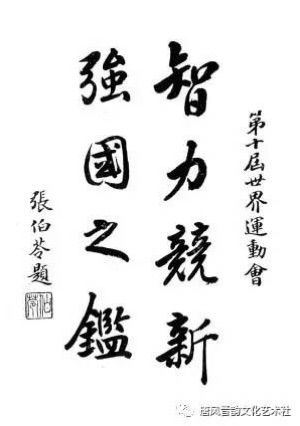 第十屆世界運動會
智力競新
強國之鑑
張伯苓題
伯苓
唐风晋韵文化艺术社